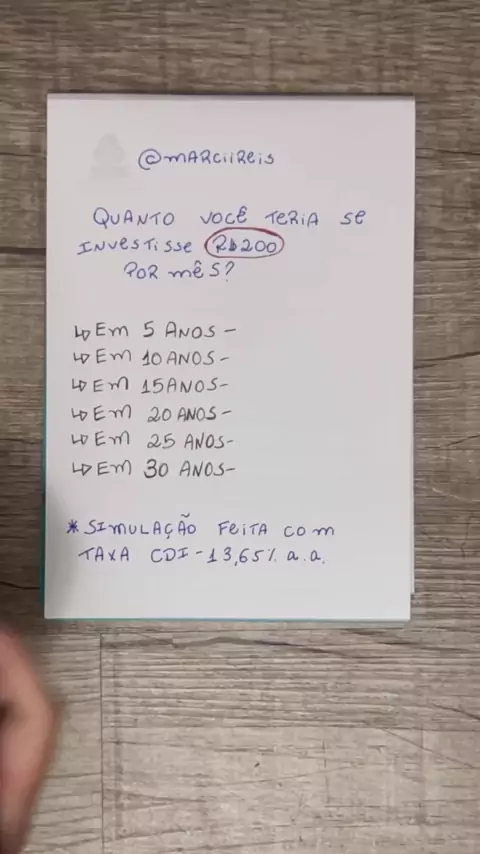 @MARCIIREIS
QUANTO VOCÊ TERIA SE
INVESTISSE R$200
POR MÊS?
↳ EM 5 ANOS-
↳ EM 10 ANOS-
↳ EM 15 ANOS-
↳ EM 20 ANOS-
↳ EM 25 ANOS-
↳ EM 30 ANOS-
* SIMULAÇÃO FEITA COM
TAXA CDI - 13,65% a.a.